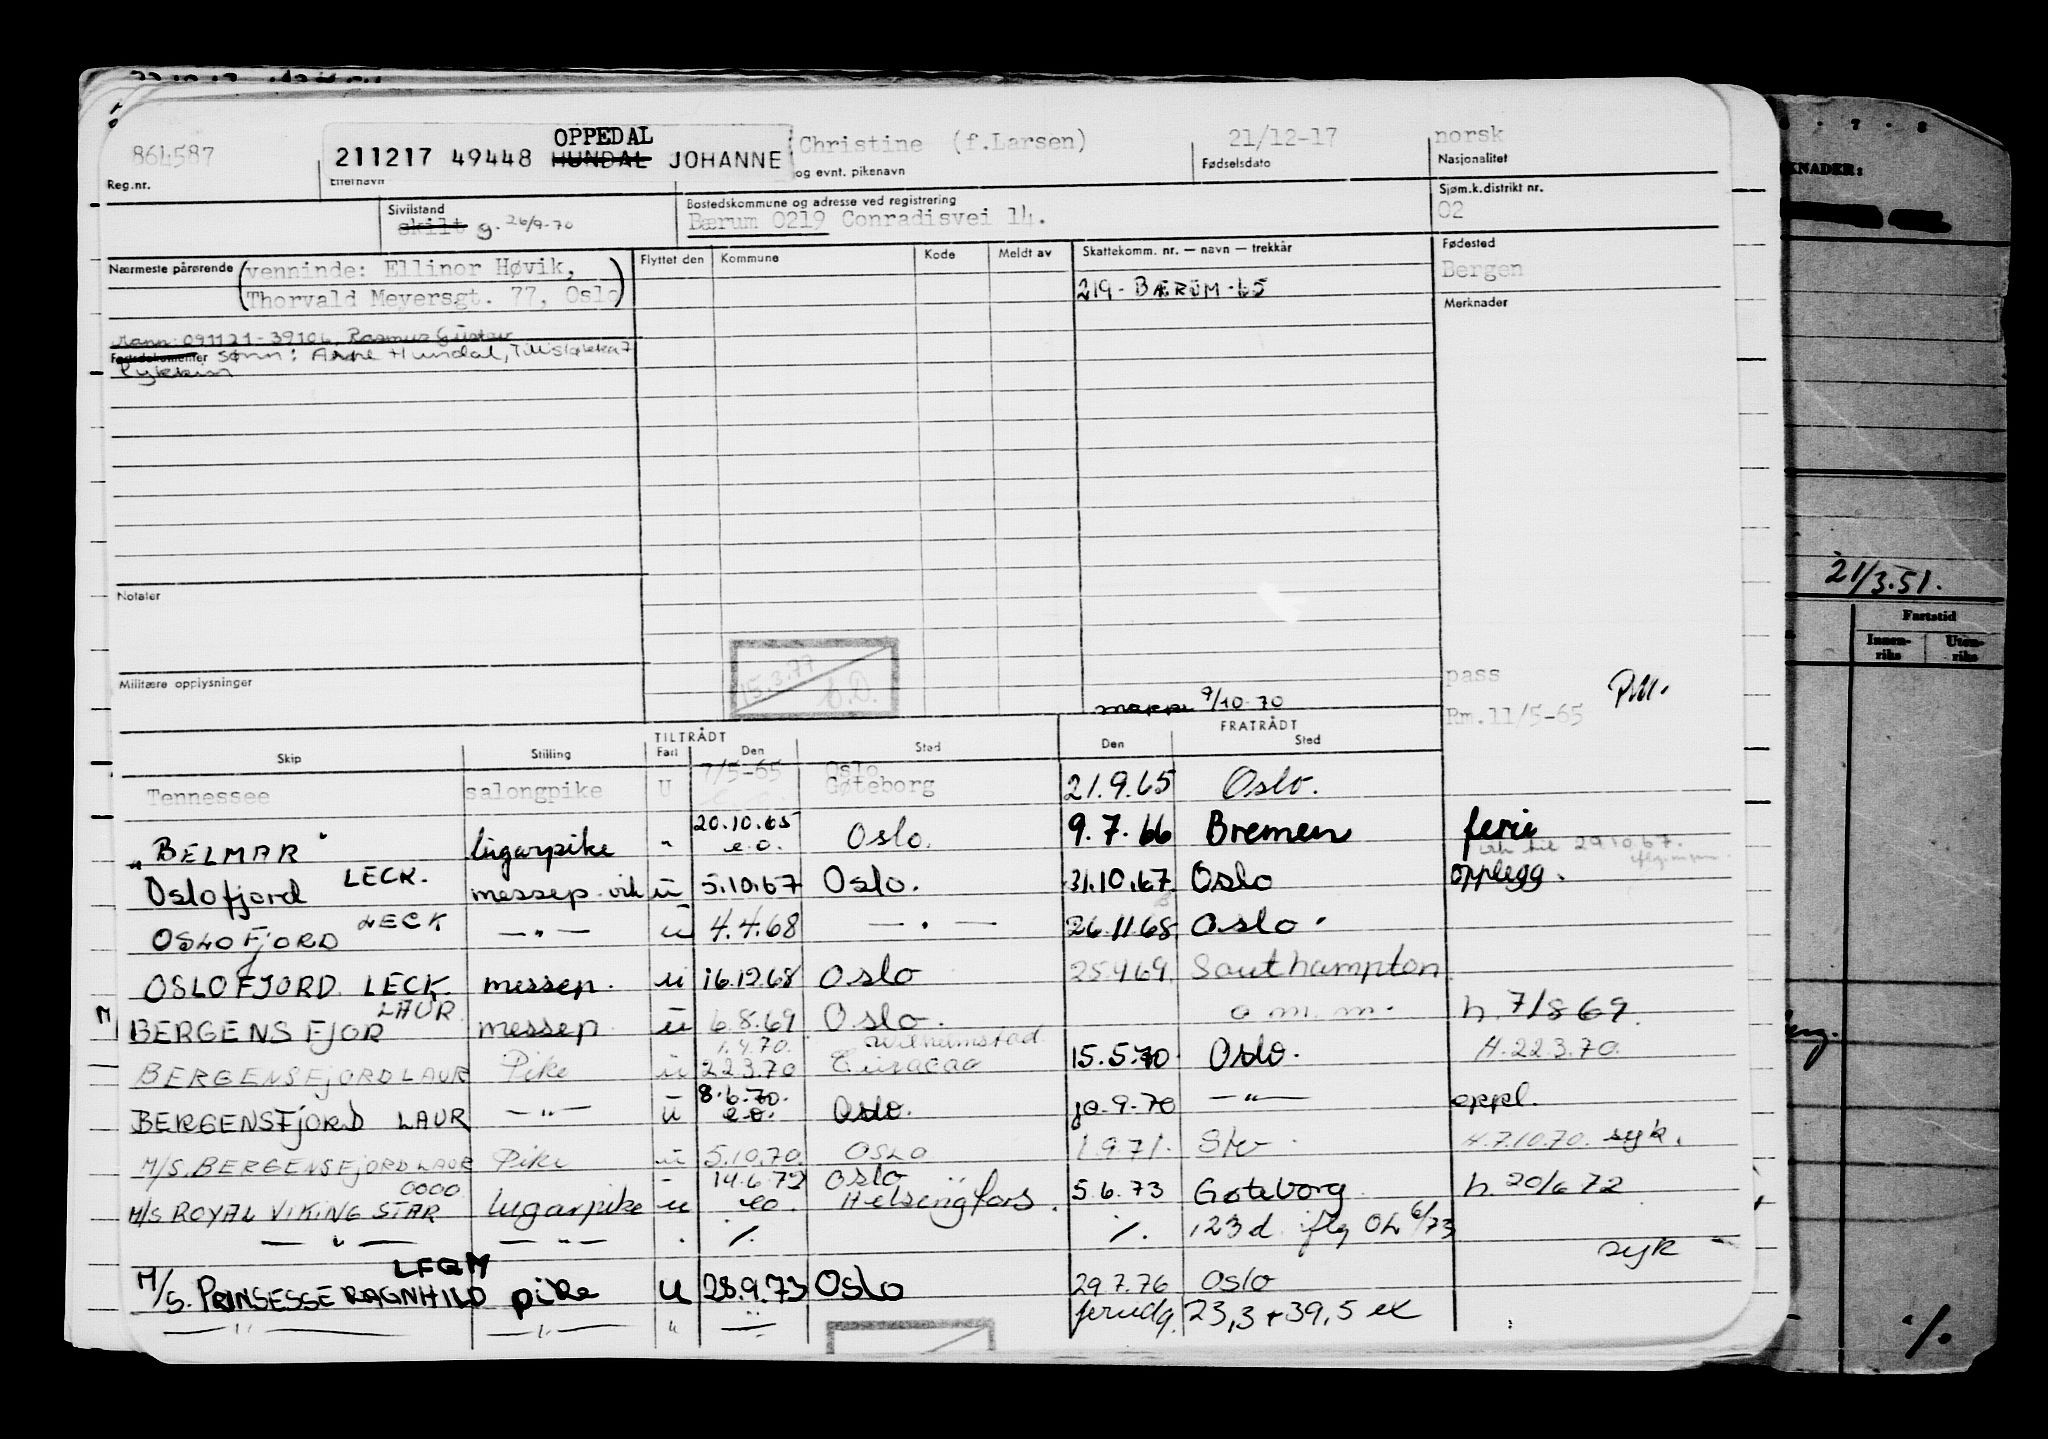 864587
Reg.nr.
OPPEDAL
211217 49448 HUNDAL JOHANNE
Etternavn
Christine (f.Larsen)
og evnt. pikenavn
21/12-17
Fødselsdato
norsk
Nasjonalitet
Sivilstand
skilt g. 26/9-70
Bostedskommune og adresse ved registrering
Bærum 0219 Conradisvei 14.
Sjøm.k.distrikt nr.
02
Nærmeste pårørende
(venninde: Ellinor Høvik,
Thorvald Meyersgt. 77, Oslo)
Mann: 091121-39106, Rasmus Gustav
sønn: Arne Hundal,
Rykkin
Flyttet den
Kommune
Kode
Meldt av
Skattekomm. nr. — navn — trekkår
219 - BÆRUM - 65
Fødested
Bergen
Merknader
Notater
Militære opplysninger
15.3.77
pass
Rm.11/5-65
9/10-70
TILTRÅDT
FRATRÅDT
Skip Stilling Fart Den Sted Den Sted
7/5-65 Oslo
Tennessee salongpike U Gøteborg 21.9.65 Oslo.
20.10.65
„BELMAR" lugarpike " e.o. Oslo. 9.7.66 Bremen ferie
29.10.67.
Oslofjord LECK. messep. vik u 5.10.67 Oslo. 31.10.67 Oslo opplegg.
OSLOFJORD LECK — " — u 4.4.68 — " — 26.11.68 Oslo.
OSLOFJORD LECK messep. u 16.12.68 Oslo 25.4.69. Southampton
BERGENSFJOR LAUR messep u 6.8.69 Oslo. a m. m. h. 7/8 69.
1.4.70. Wilhelmstad
BERGENSFJORD LAUR Pike u 22.3.70 Curacao 15.5.70 Oslo. H.22.3.70.
8.6.70.
BERGENSFJORD LAUR — " — u e.o. Oslo. 10.9.70 — " — oppl.
M/S. BERGENSFJORD LAUR Pike u 5.10.70. OSLO 1.9.71. H.7.10.70. syk.
OOOO 14.6.72 Oslo
M/S ROYAL VIKING STAR lugarpike u eo. Helsingfors. 5.6.73 Gøteborg. h. 20/6 72
— " — — " — " ./. ./. 123 d. iflg OL 6/73
syk
LFQM
M/S. PRINSESSE RAGNHILD pike u 28.9.73 Oslo 29.7.76 Oslo
— " — — " — " — " — feriedg. 23,3 + 39,5 ex
7 · 8
KNADER:
21/3.51.
Fartstid
Innen-
riks
Uten-
riks
./.